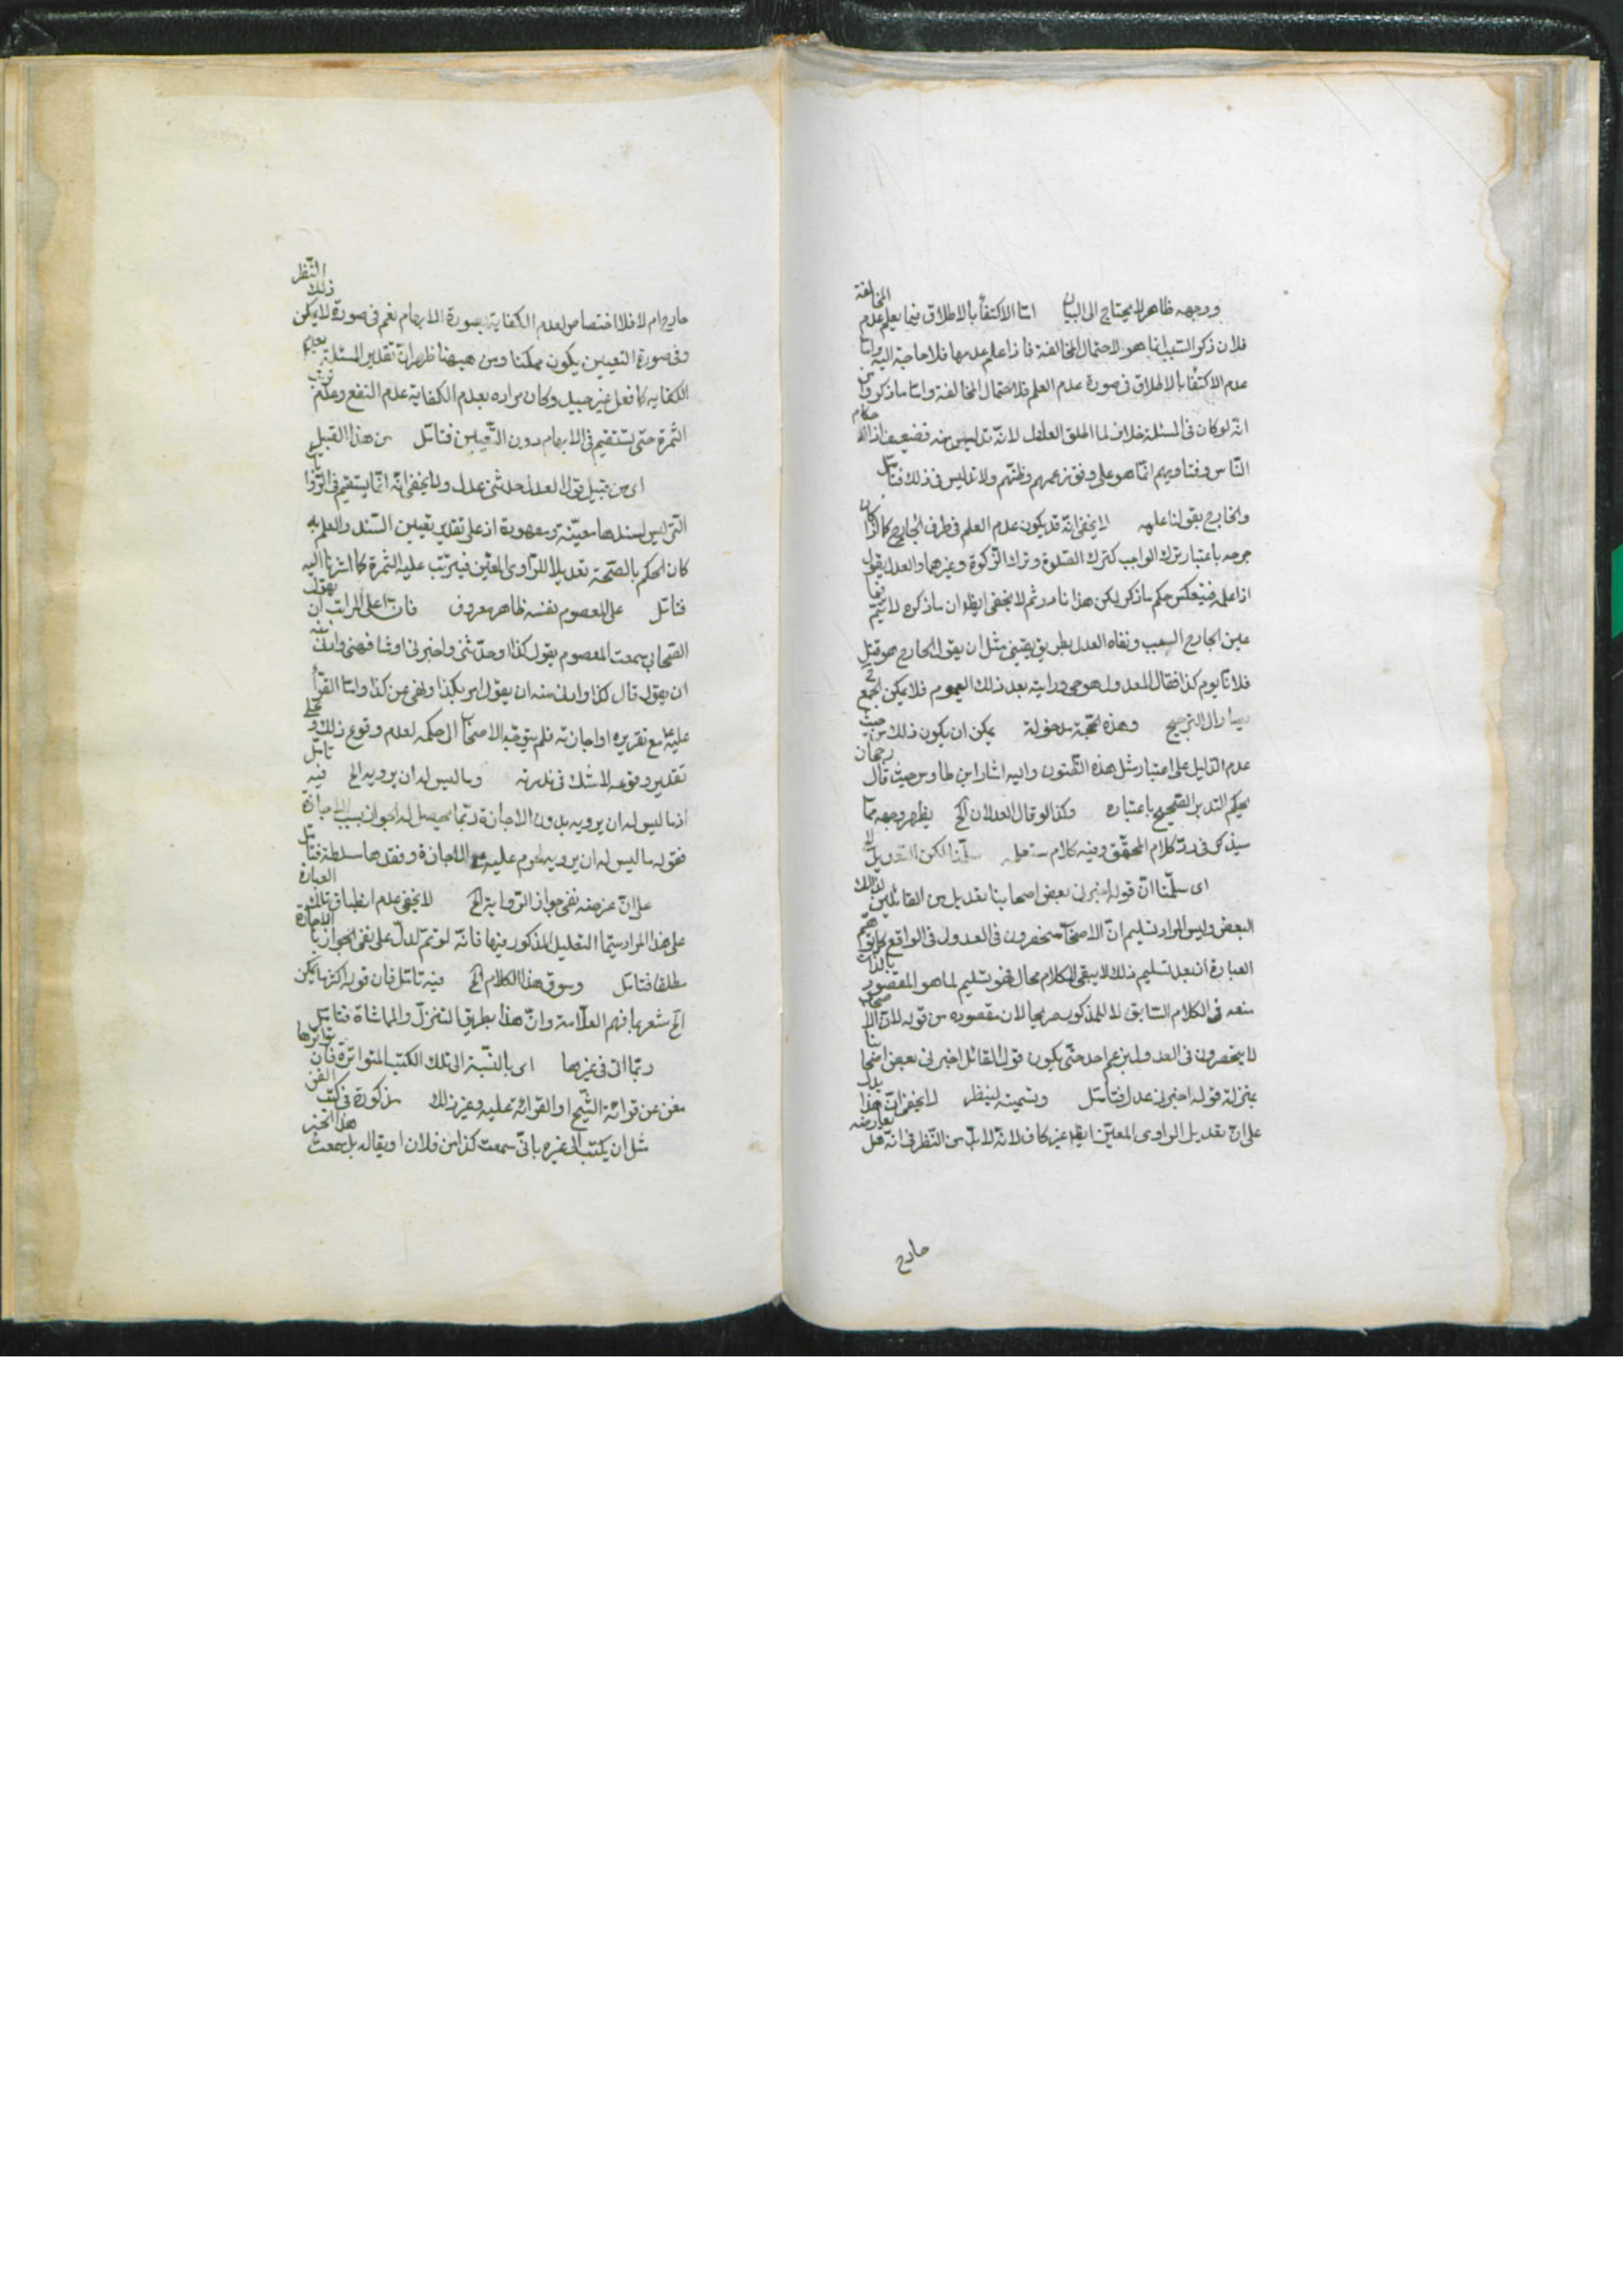 ووجهه ظاهر لا يحتاج الى البيان اما الاكتفاء بالاطلاق فيما يعلم عدم المخالفة
فلان ذكر السبب انما هو لاحتمال المخالفة فاذا علم عدمها فلا حاجة اليه واما
عدم الاكتفاء بالاطلاق فى صورة عدم العلم فلاحتمال المخالفة واما ما ذكروا من
انه لو كان فى المسئلة خلاف لما اطلق العلم لانه تدليس منه فضعيف اذ
الناس وفتاويهم انما هو على وفق زعمهم وظنهم ولا تدليس فى ذلك فتامل
والجارح بقولنا علمه لا يخفى انه قد يكون عدم العلم فى طرف الجارح كما اذا كان
جرحه باعتبار ترك الواجب كترك الصلوة وترك الزكوة وغيرهما والعدل يقول
اذا علمه فينعكس حكم ما ذكر لكن هذا نادر ثم لا يخفى ايضا ان ما ذكره لا يتم
عين الجارح السبب ونفاه العدل بطريق يقينى مثل ان يقول الجارح هو قتل
فلانا يوم كذا فقال المعدل هو حى ورايته بعد ذلك اليوم فلا يمكن الجمع
الترجيح وهذه الحجة مدخولة يمكن ان يكون ذلك من حيث
عدم الدليل على اعتبار مثل هذه الظنون واليه اشار ابن طاوس حيث قال
يحكم التدبر الصحيح باعتباره وكذا لو قال العدلان الخ يظهر وجهه مما
سيذكر فى رد كلام المحقق وفيه كلام ستعلمه سلمنا لكن التعديل الخ
اى سلمنا ان قوله اخبرنى بعض اصحابنا تعديل من القائل لذلك
البعض وليس المراد تسليم ان الاصحاب منحصرون فى العدول فى الواقع
العبارة اذ بعد تسليم ذلك لا يبقى للكلام مجال فهو تسليم لما هو المقصود بالذات
منعه فى الكلام السابق لا للمذكور صريحا لان مقصوده من قوله لان الاصحاب
لا ينحصرون فى العدول بزعم احد حتى يكون قول القائل اخبرنى بعض اصحابنا
بمنزلة قوله اخبرنى عدل فتامل وتسميته لينظر لا يخفى ان هذا يدل
على ان تعديل الراوى المعين ايضا غير كاف لانه لا بد من النظر فى انه هل
جارح
جارح ام لا فلا اختصاص لعدم الكفاية بصورة الابهام نعم فى صورة لا يمكن ذلك النظر
وفى صورة التعيين يكون ممكنا ومن هيهنا ظهر ان تقدير المسئلة بعدم
الكفايه كما فعل غير جيد وكان مراده بعدم الكفاية عدم النفع وعدم ترتب
الثمرة حتى يستقيم فى الابهام دون التعيين فتامل من هذا القبيل
اى من قبيل قول العدل حدثنى عدل ولا يخفى انه انما يستقيم فى الروايات
التى ليس سندها معينة ومعهودة اذ على تقدير تعيين السند والعلم به
كان الحكم بالصحة تعديلا للراوى المعين فيترتب عليه الثمرة كما اشرنا اليه
فتامل على المعصوم بنفسه ظاهر معروف فان اعلى المراتب ان يقول
الصحابى سمعت المعصوم يقول كذا وحدثنى واخبرنى او شافهنى وادنى منه
ان يقول قال كذا وادنى منه ان يقول امر بكذا ونهى عن كذا واما القرأة
عليه مع تقريره او اجازته فلم يتوقبه الاصحاب الى حكمه لعدم وقوع ذلك وعلى
تقدير وقوعه لا شك فى ندرته وما ليس له ان يرويه الخ فيه تامل
اذ ما ليس له ان يرويه بدون الاجازة ربما يحصل له الجواز بسبب الاجازة
فقوله ما ليس له ان يرويه الاجازة وفقدها سلطة فتامل
على ان عرضه نفى جواز الرواية الخ لا يخفى عدم انطباق تلك العبارة
على هذا المراد سيما التعليل المذكور فيها فانه لو تم لدل على نفى الجواز بالاجازة
مطلقا فتامل وسوق هذا الكلام الخ فيه تامل فان قوله اكثر ما يمكن
الخ مشعر بما فهم العلامة وان هذا بطريق التنزل والمماشاة فتامل
ربما اتى فى غيرها اى بالنسبة الى تلك الكتب المتواترة فان تواترها
مغن عن قرائة الشيخ او القرائة عليه وغير ذلك مذكورة فى كتب الفن
مثل ان يكتب الى غيره بانى سمعت كذا من فلان او يقال له هل سمعت هذا الخبر